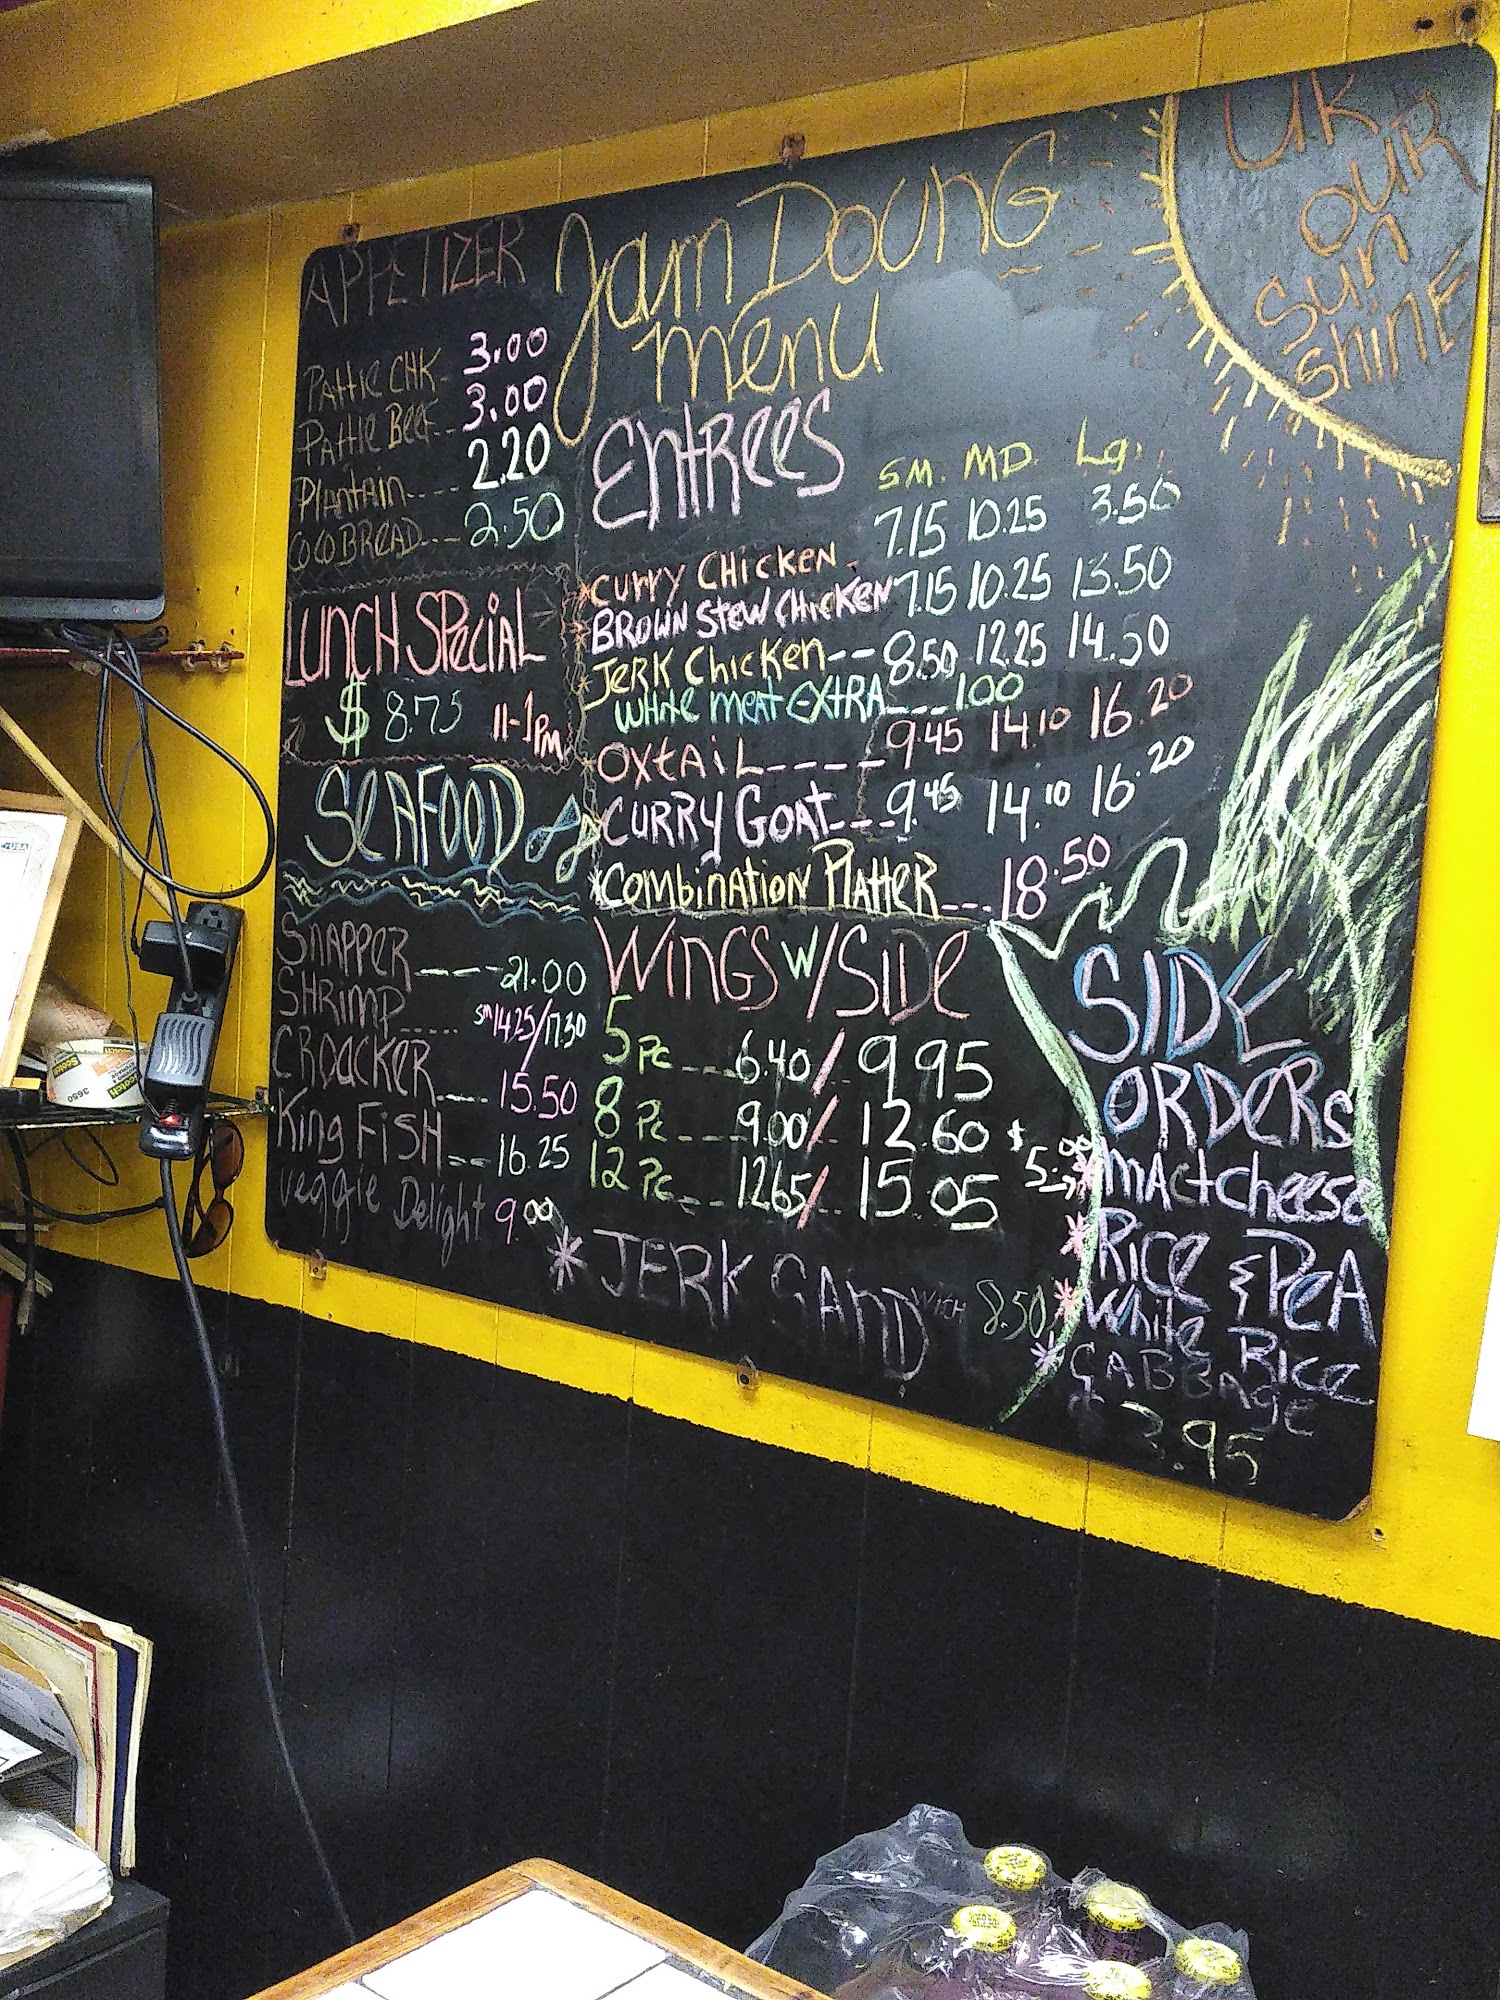 Jam Doung
menu
UR
OUR
Sun
shinE
APPETIZER
Pattie CHK- 3.00
Pattie Beef-- 3.00
Plantain---- 2.20
COCO BREAD--- 2.50
LUNCH SPecial
$ 8.75 11-1PM
SeAFOOD
SNAPPER----21.00
SHRIMP..... sm 14.25/17.50
CROACKER---- 15.50
King FiSH---16.25
Veggie Delight 9.00
EntRees
SM. MD. Lg.
*CURRY CHICKEN - 7.15 10.25 3.50
*BROWN STEW CHICKEN 7.15 10.25 13.50
*JERK ChicKen--8.50 12.25 14.50
White meat EXTRA---1.00
*OXtAiL-----9.45 14.10 16.20
CURRY GOAT---9.45 14.10 16.20
*COMbiNATION PlAtteR---18.50
WiNGS W/SIDe
5 Pc---6.40/ 9.95
8 Pc---9.00/ 12.60
12 Pc---12.65/ 15.05
*JERK SANDWICH 8.50
SIDE
ORDeRs
$5.00
→*MAC+Cheese
*Rice & PeA
*White Rice
*CABBAge
$ 3.95
Scotch
3650